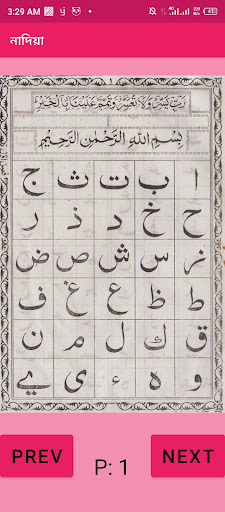 3:29 AM
নাদিয়া
رَبِّ يَسِّرْ وَلَا تُعَسِّرْ وَتَمِّمْ عَلَيْنَا بِالْخَيْرِ
بِسْمِ اللهِ الرَّحْمٰنِ الرَّحِيْمِ
ا ب ت ث ج
ح خ د ذ ر
ز س ش ص ض
ط ظ ع غ ف
ق ك ل م ن
و ه ء ي ے
PREV P: 1 NEXT